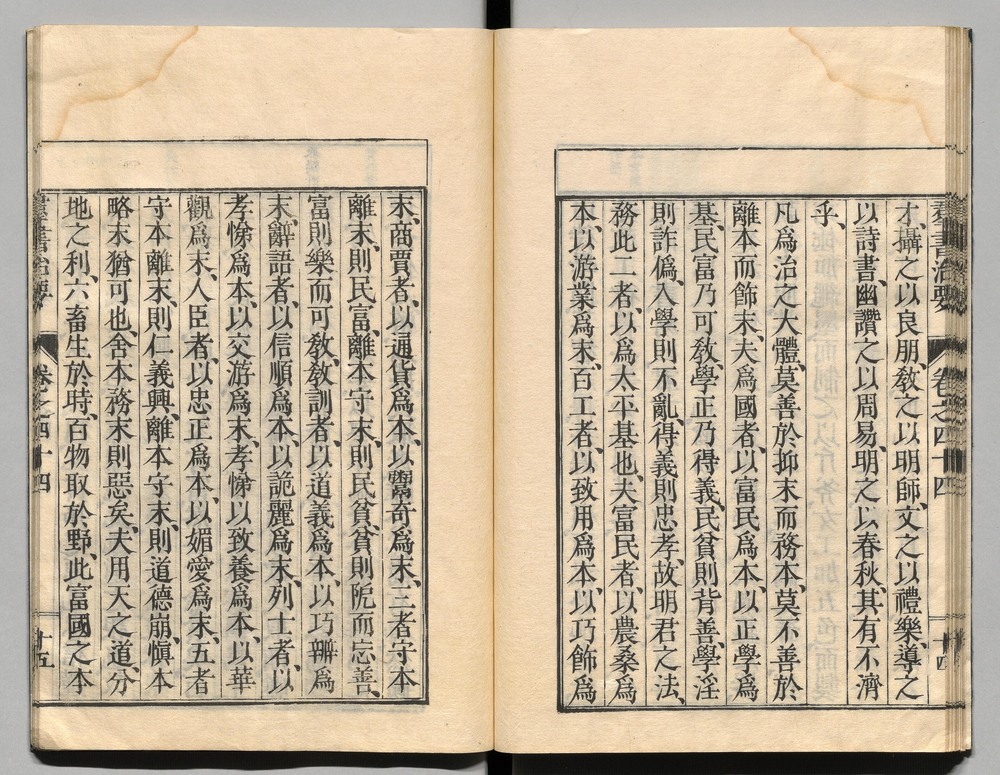 羣書治要 卷之四十四 十四
才、攝之以良朋、敎之以明師、文之以禮樂、導之
以詩書、幽讚之以周易、明之以春秋、其有不濟
乎、
凡爲治之大體、莫善於抑末而務本、莫不善於
離本而飾末、夫爲國者、以富民爲本、以正學爲
基、民富乃可敎、學正乃得義、民貧則背善、學淫
則詐僞、入學則不亂、得義則忠孝、故明君之法、
務此二者、以爲太平基也、夫富民者、以農桑爲
本、以游業爲末、百工者、以致用爲本、以巧飾爲
末、商賈者、以通貨爲本、以鬻奇爲末、三者守本
離末、則民富、離本守末、則民貧、貧則阨而忘善、
富則樂而可敎、敎訓者、以道義爲本、以巧辯爲
末、辭語者、以信順爲本、以詭麗爲末、列士者、以
孝悌爲本、以交游爲末、孝悌以致養爲本、以華
觀爲末、人臣者、以忠正爲本、以媚愛爲末、五者
守本離末、則仁義興、離本守末、則道德崩、愼本
略末猶可也、舍本務末則惡矣、夫用天之道、分
地之利、六畜生於時、百物取於野、此富國之本
羣書治要 卷之四十四 十五